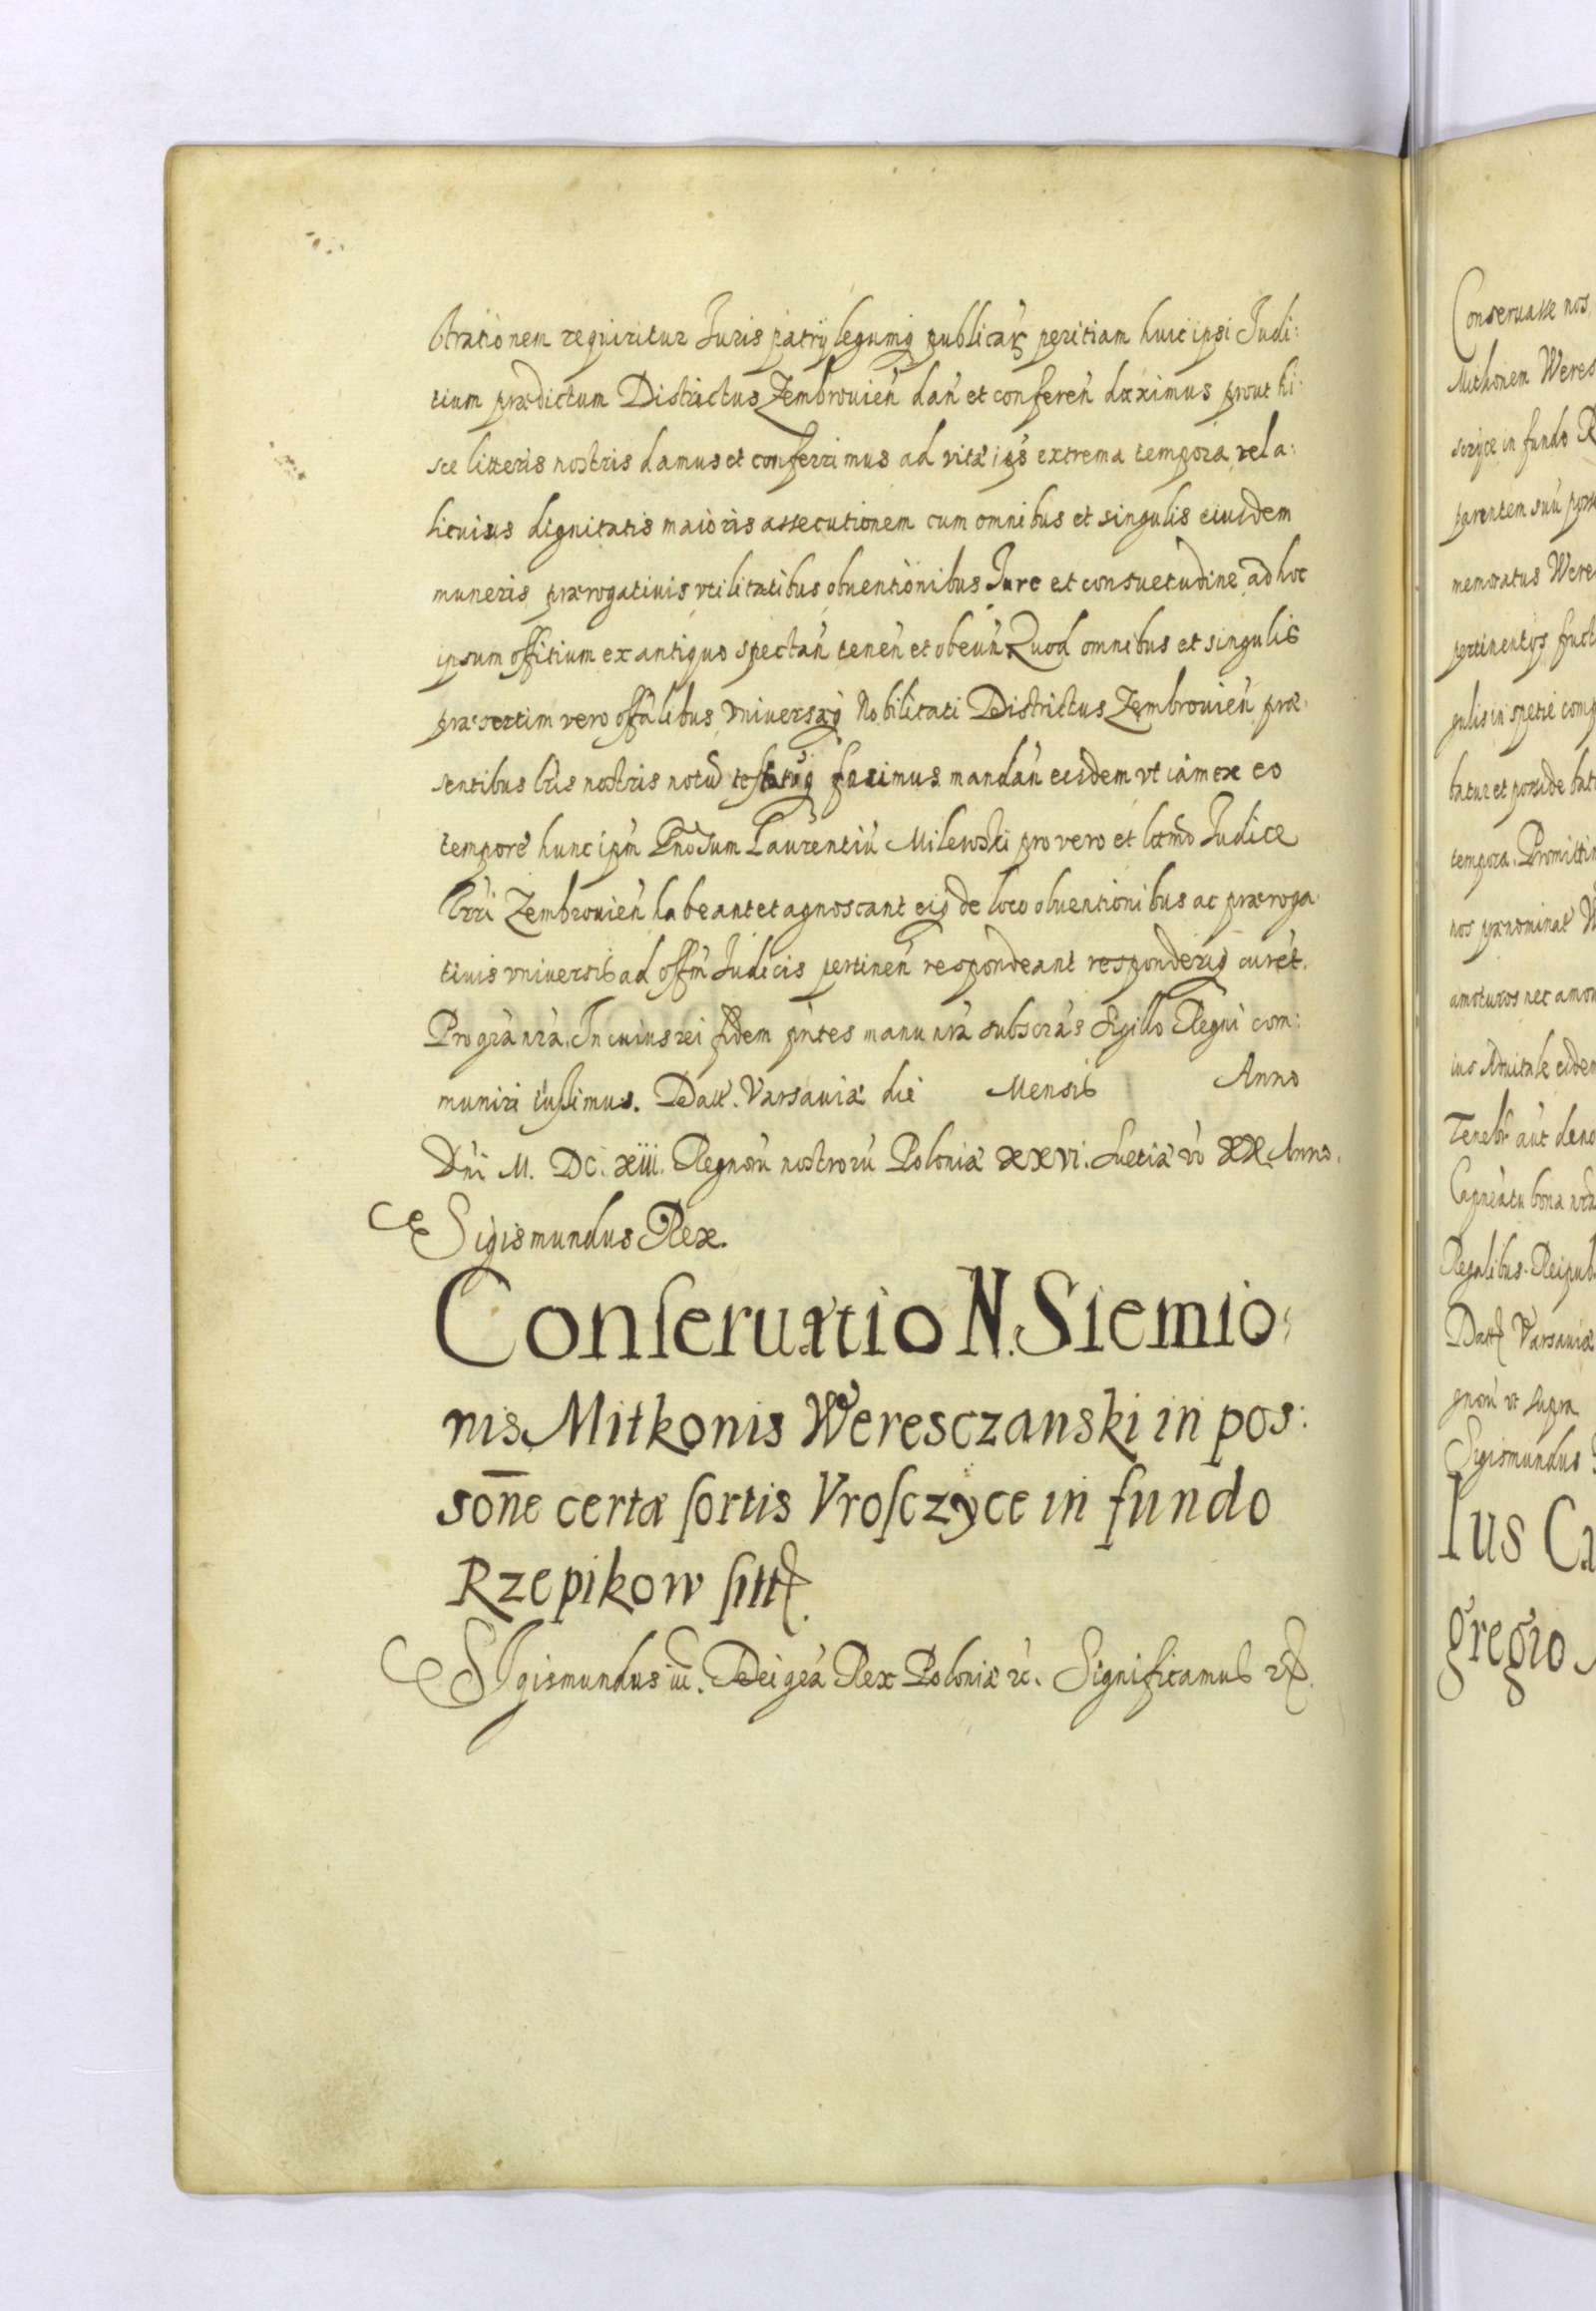 strationem requiritur Iuris patrij legumq publicar peritiam huic ipsi Judi:
tium prædictum Districtus Zembrouien̄ dan̄ et conferen̄ duximus prout hi:
sce litteris nostris damus et conferrimus ad vitæ ips extrema tempora, vel a:
licuius dignitatis maioris assecutionem cum omnibus et singulis eiusdem
muneris prærogatiuis vtilitatibus obuentionibus Jure et consuetudine ad hoc
ipsum offitium ex antiquo spectan̄ tenen̄ et obeun̄. Quod omnibus et singulis
præsertim vero offālibus, Vniversæq Nobilitati Districtus Zembrouien̄ præ:
sentibus lrīs nostris notū testatūq facimus mandan̄ eisdem vt iam ex eo
tempore hunc ipm̄ Gn̄osum Laurentiū Milewski pro vero et ltt̄mo Judice
Trri Zembrouien̄ habeant et agnoscant eiq de loco obuentionibus ac præroga:
tiuis vniuersis ad offm̄ Iudicis pertinen̄ respondeant responderiq curēt.
Pro grā nrā. In cuius rei fidem pn̄tes manu nrā subscrās Sigillo Regni com:
muniri iussimus. Datt. Varsauiæ die Mensis Anno
Dn̄i M. DC. XIII. Regnorū nostrorū Poloniæ XXVI. Suetiæ vō XX. Anno.
Sigismundus Rex.
Conſeruatio N. Siemio:
nis Mitkonis Weresczanski in pos:
son̄e certæ ſortis Vroſczyce in fundo
Rzepikow ſitt.
SIgismundus iii. Dei grā Rex Poloniæ &c. Significamus &.
Conseruasse nos
Mithonem Weres
sczyce in fundo R
parentem suū poss
memoratus Were
pertinentijs fruct
gulis in spetie comp
batur et possidebat
tempora. Promittim
nos prænominat W
amoturos nec amo
ius Aduitale eidem
Teneb aūt deno
Capneatu bona nrā
Regalibus. Reipub
Datt Varsauiæ
gnorū vt supra
Sigismundus
Ius Ca
gregio